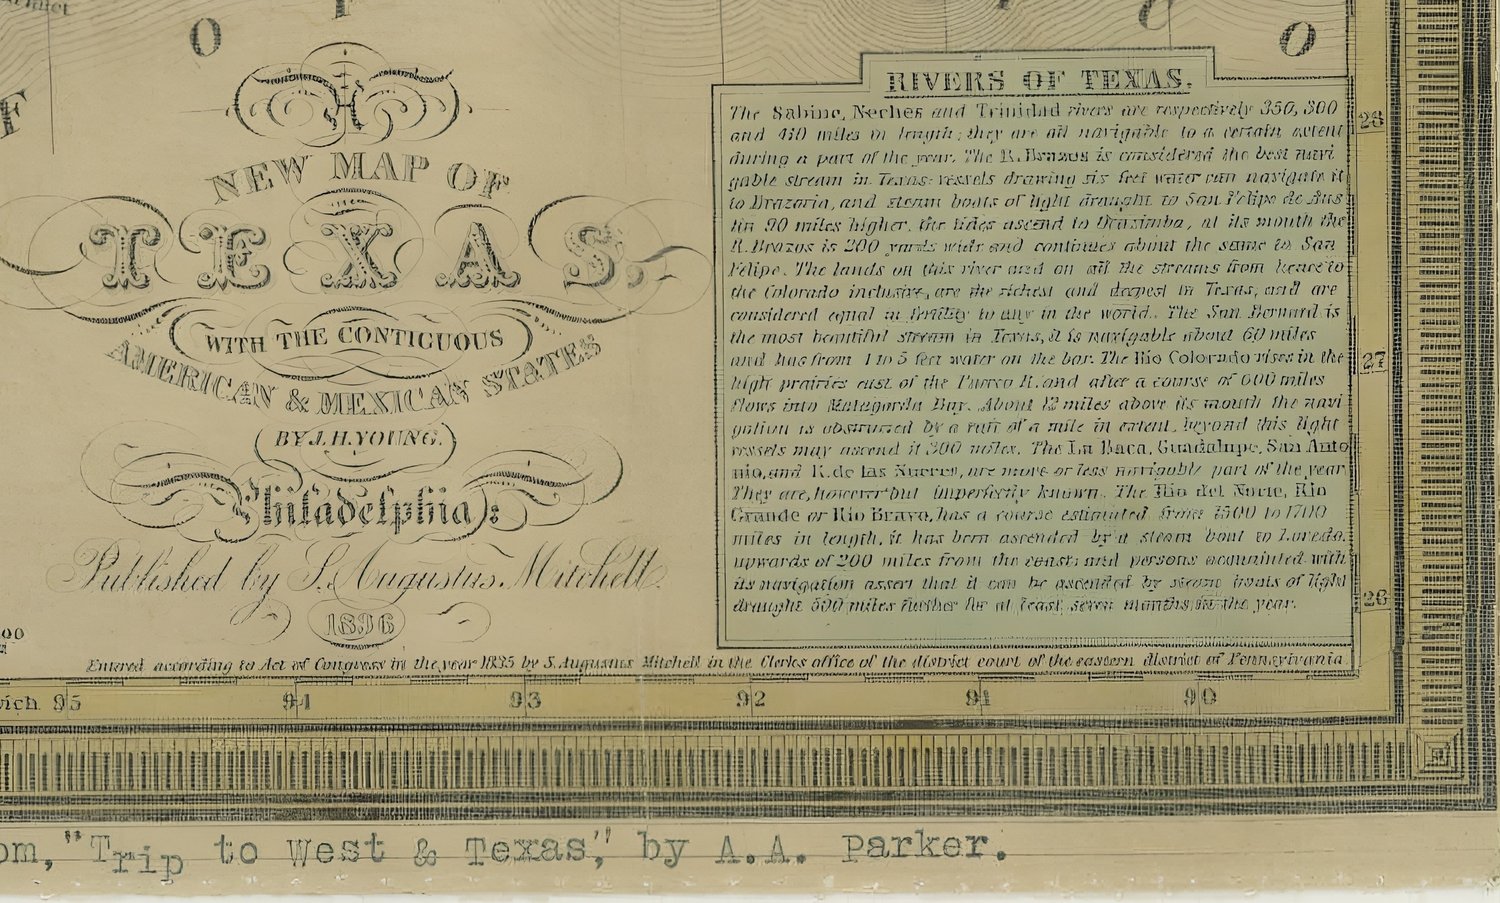 O F
O
F
C
O
A
NEW MAP OF
TEXAS,
WITH THE CONTIGUOUS
AMERICAN & MEXICAN STATES
BY J. H. YOUNG.
Philadelphia:
Published by S. Augustus Mitchell.
1836
RIVERS OF TEXAS.
The Sabine, Neches and Trinidad rivers are respectively 350, 300
and 410 miles in length; they are all navigable to a certain extent
during a part of the year. The R. Brazos is considered the best navi
gable stream in Texas: vessels drawing six feet water can navigate it
to Brazoria, and steam boats of light draught to San Felipe de Aus
tin 90 miles higher, the tides ascend to Orazimba, at its mouth the
R. Brazos is 200 yards wide and continues about the same to San
Felipe. The lands on this river and on all the streams from hence to
the Colorado inclusive, are the richest and deepest in Texas, and are
considered equal in fertility to any in the world. The San Bernard is
the most beautiful stream in Texas, it is navigable about 60 miles
and has from 4 to 5 feet water on the bar. The Rio Colorado rises in the
high prairies east of the Puerco R. and after a course of 600 miles
flows into Matagorda Bay. About 12 miles above its mouth the navi
gation is obstructed by a raft of a mile in extent, beyond this light
vessels may ascend it 300 miles. The La Baca, Guadalupe, San Anto
nio, and R. de las Nueces, are more or less navigable part of the year
They are, however but imperfectly known. The Rio del Norte, Rio
Grande or Rio Bravo, has a course estimated from 1500 to 1700
miles in length, it has been ascended by a steam boat to Loredo,
upwards of 200 miles from the coast; and persons acquainted with
its navigation assert that it can be ascended by steam boats of light
draught 500 miles further for at least seven months in the year.
28
27
26
00
Entered according to Act of Congress in the year 1835 by S. Augustus Mitchell in the Clerks office of the district court of the eastern district of Pennsylvania
wich 95 94 93 92 91 90
om, "Trip to West & Texas," by A.A. Parker.